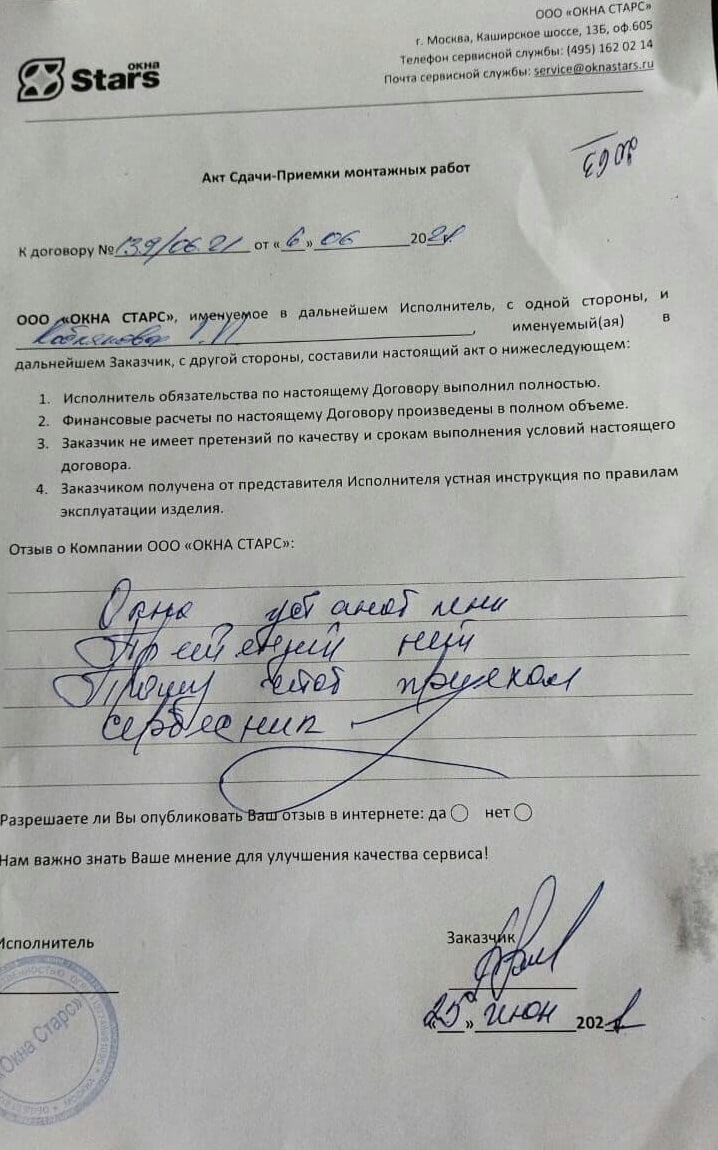 ООО «ОКНА СТАРС»
г. Москва, Каширское шоссе, 13Б, оф.605
Телефон сервисной службы: (495) 162 02 14
Почта сервисной службы: service@oknastars.ru
ОКНА
Stars
Акт Сдачи-Приемки монтажных работ
К договору № 139/06.21 от «6» 06 2021
ООО «ОКНА СТАРС», именуемое в дальнейшем Исполнитель, с одной стороны, и
, именуемый(ая) в
дальнейшем Заказчик, с другой стороны, составили настоящий акт о нижеследующем:
1. Исполнитель обязательства по настоящему Договору выполнил полностью.
2. Финансовые расчеты по настоящему Договору произведены в полном объеме.
3. Заказчик не имеет претензий по качеству и срокам выполнения условий настоящего
договора.
4. Заказчиком получена от представителя Исполнителя устная инструкция по правилам
эксплуатации изделия.
Отзыв о Компании ООО «ОКНА СТАРС»:
Окна
нет
Прошу чтоб приехал
сервесник
Разрешаете ли Вы опубликовать Ваш отзыв в интернете: да нет
Нам важно знать Ваше мнение для улучшения качества сервиса!
Исполнитель
Заказчик
«25» июн 2021
«Окна Старс»